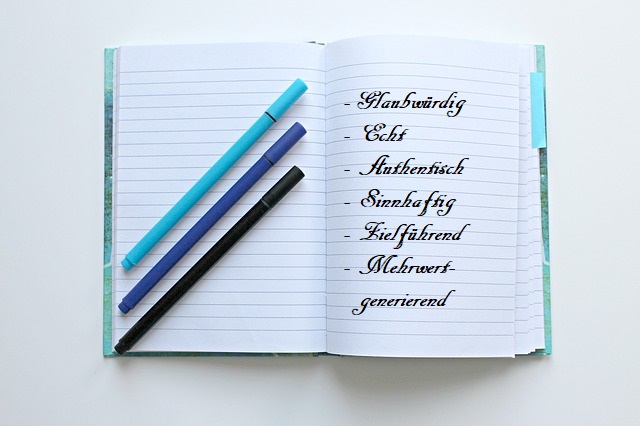 - Glaubwürdig
- Echt
- Authentisch
- Sinnhaftig
- Zielführend
- Mehrwert-
generierend